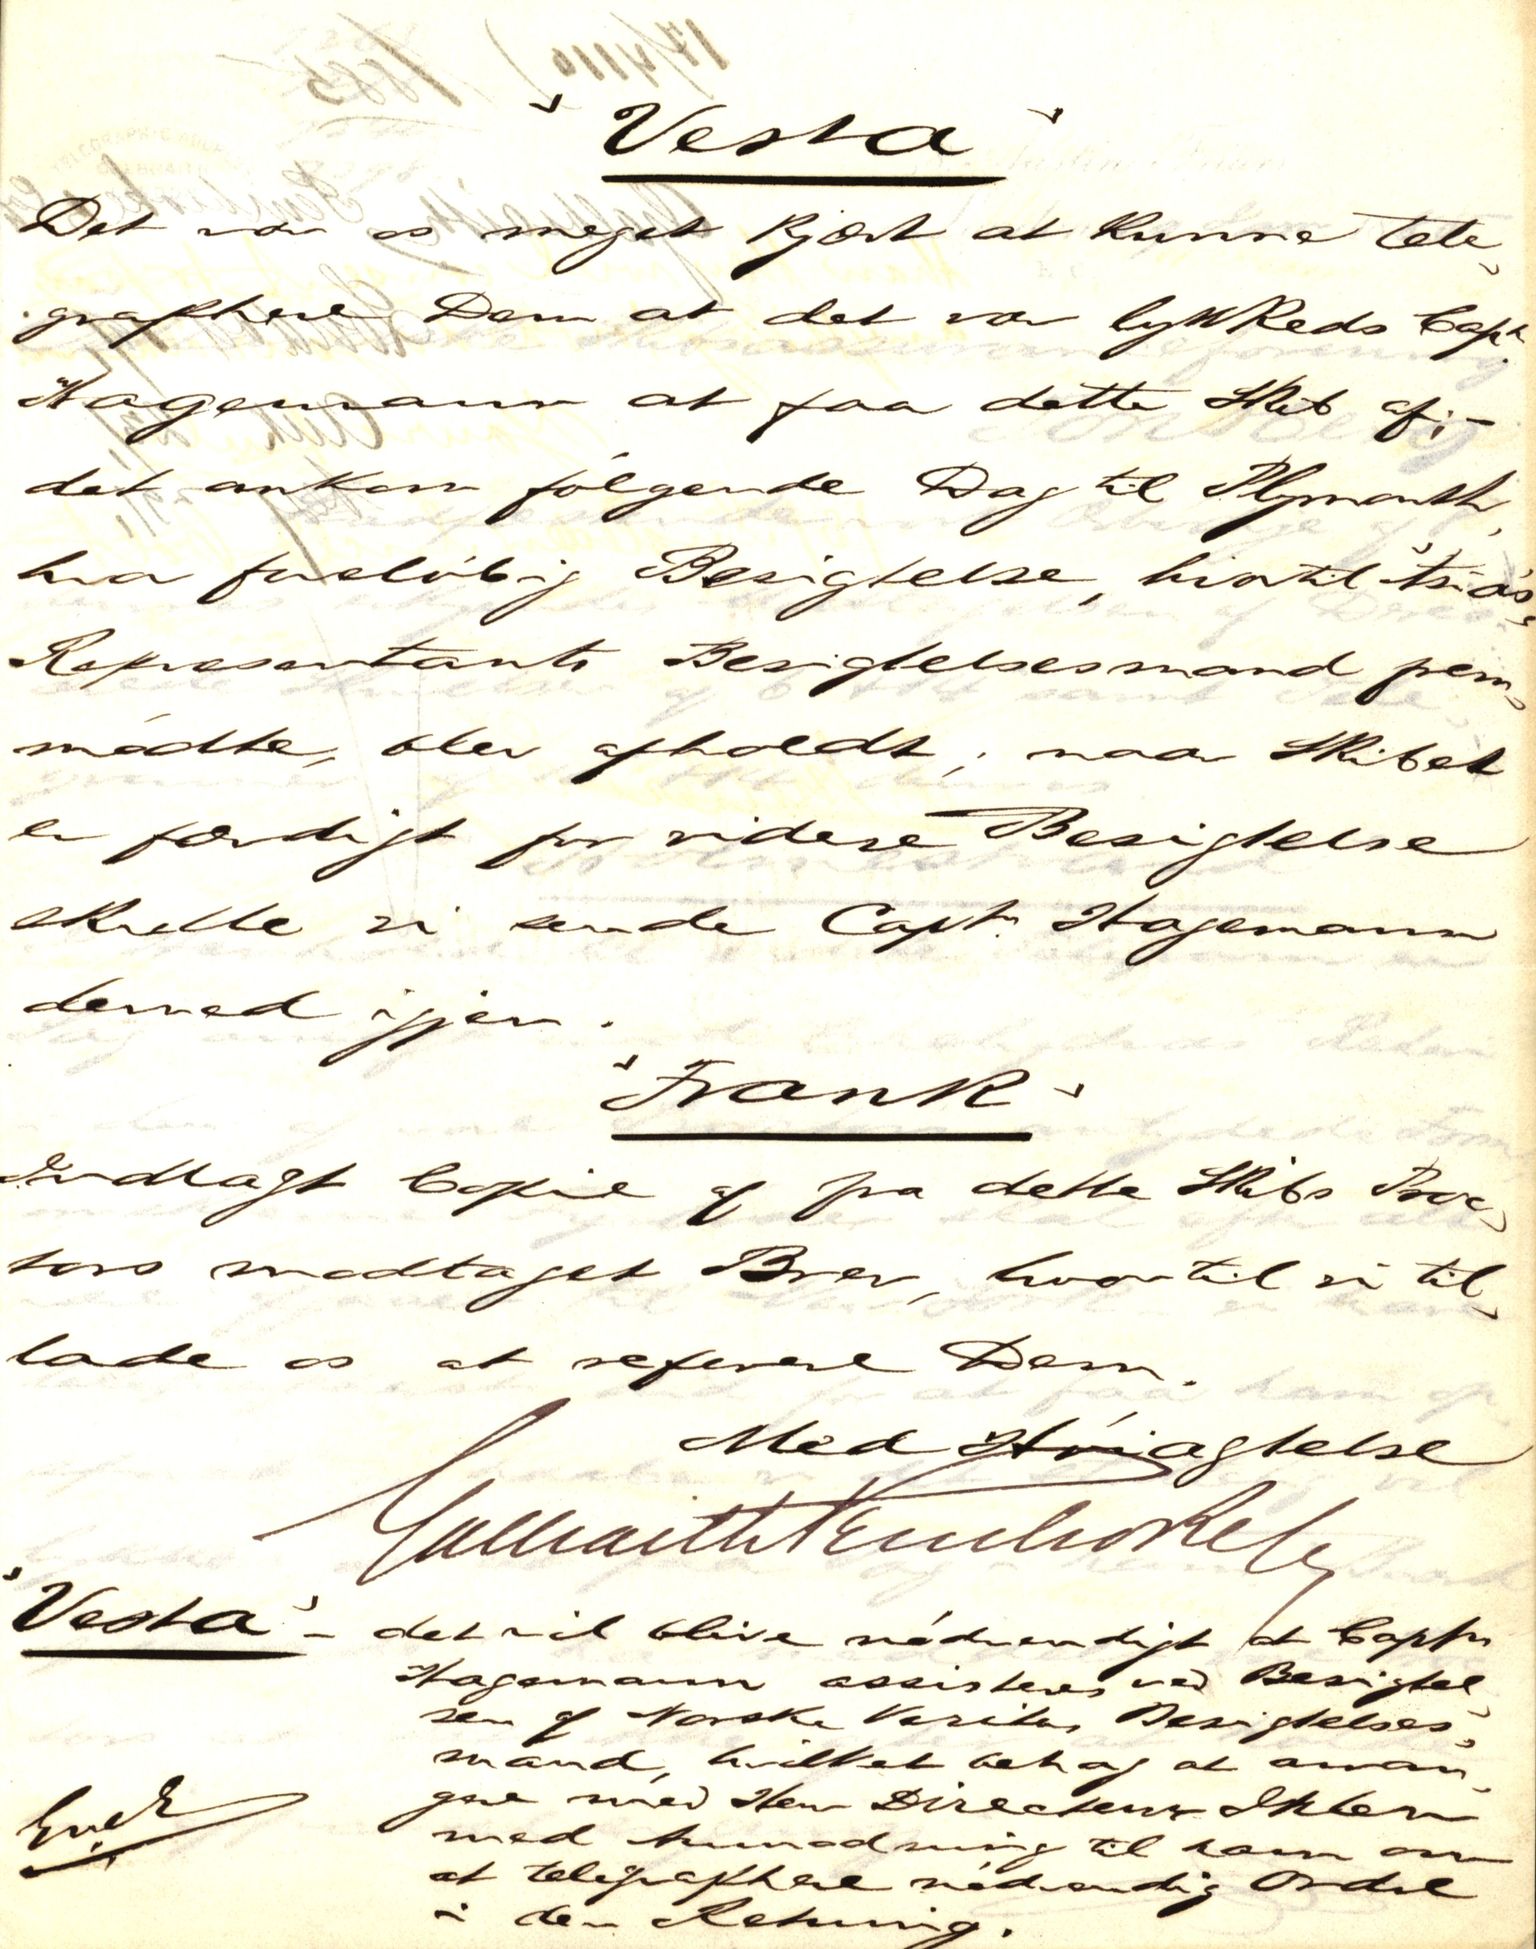 "Vesta"
Det var os meget kjært at kunne tele-
graphere Dem at det var lykkeds Capt.
Hagemann at faa dette Skib af; -
det ankom følgende Dag til Plymouth,
hvor foreløbig Besigtelse, hvortil
Representants Besigtelsesmand frem-
mødte, blev afholdt; naar Skibet
er færdigt for videre Besigtelse
skulle vi sende Capt. Hagemann
derned igjen.
"Frank"
Indlagt Copie af fra dette Skibs Proc-
tors modtaget Brev, hvortil vi til-
lade os at referere Dem.
Med Høiagtelse
Galbraith Pembroke & Co
"Vesta" - det vil blive nødvendigt at Captn
Hagemann assisteres ved Besigtel-
sen af Norske Veritas Besigtelses-
mand, hvilket behag at arran-
gere med Herr Directeur
med Anmodning til ham om
at telegraphere nødvendig Ordre
i den Retning.